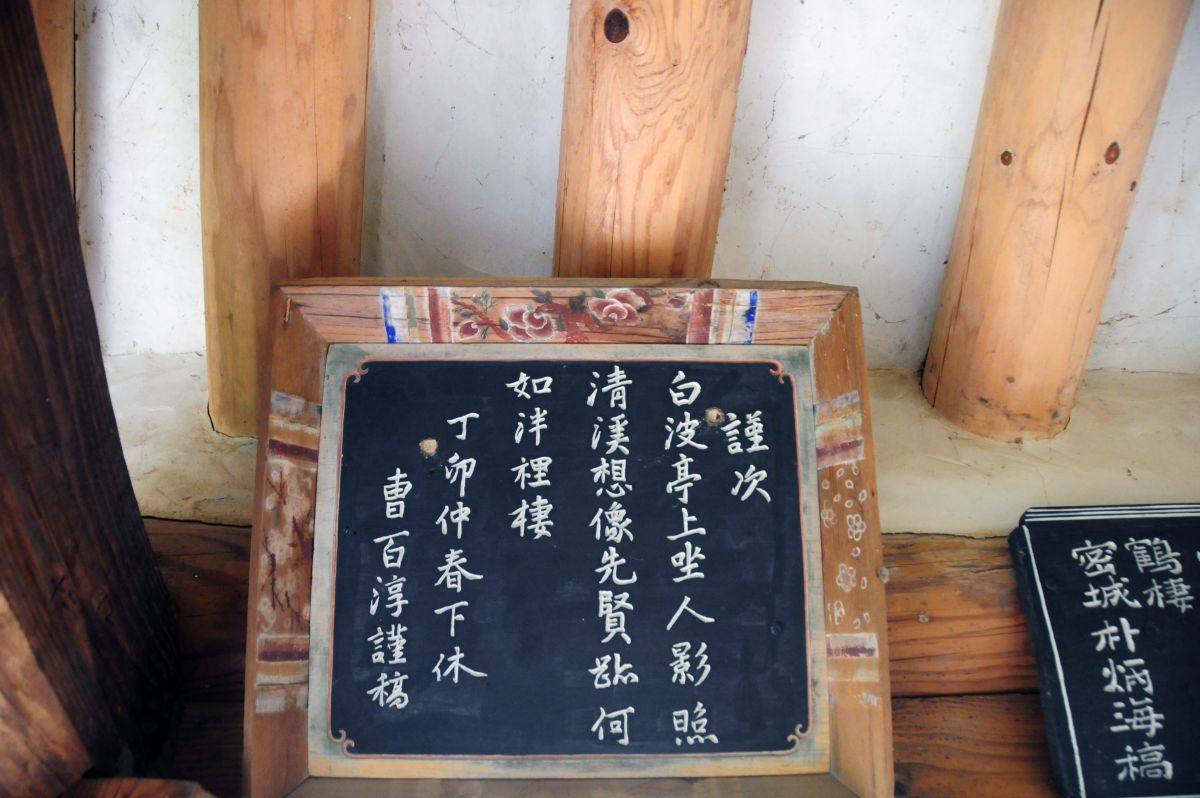 鶴棲
密城朴炳海稿
謹次
白波亭上坐人影照
清溪想像先賢趾何
如泮裡棲
丁卯仲春下休
曺百淳謹稿